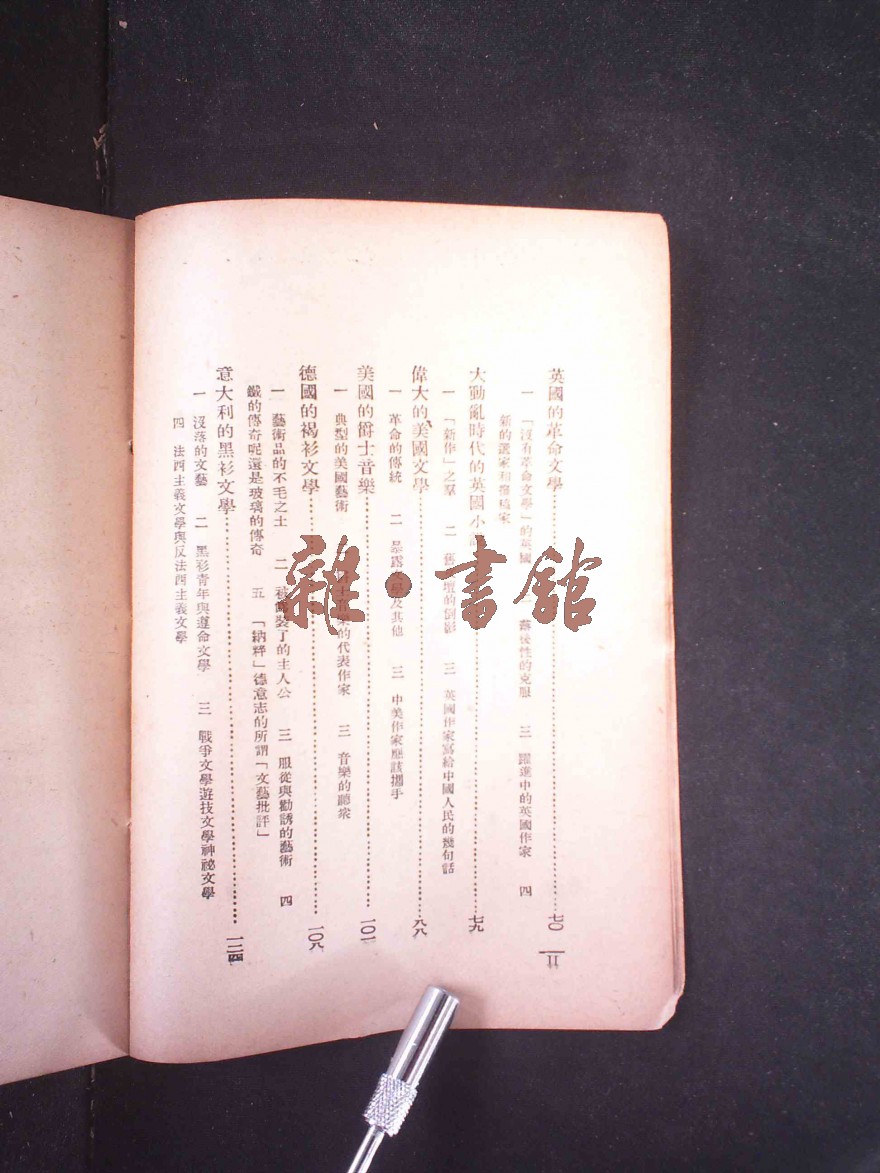 英國的革命文學……七〇
一 「沒有革命文學」的英國 落後性的克服 三 躍進中的英國作家 四
新的選家和
大動亂時代的英國小……七九
一 「新作」之羣 二 舊 壇的倒影 三 英國作家寫給中國人民的幾句話
偉大的美國文學……八八
一 革命的傳統 二 暴露文學及其他 三 中美作家應該攜手
美國的爵士音樂……一〇一
一 典型的美國藝術 的代表作家 三 音樂的聽衆
德國的褐衫文學……一〇八
一 藝術品的不毛之土 二 被 裝了的主人公 三 服從與勸誘的藝術 四
鐵的傳奇呢還是玻璃的傳奇 五 「納粹」德意志的所謂「文藝批評」
意大利的黑衫文學……一二四
一 沒落的文藝 二 黑衫青年與遵命文學 三 戰爭文學遊技文學神祕文學
四 法西主義文學與反法西主義文學
II
雜·書館